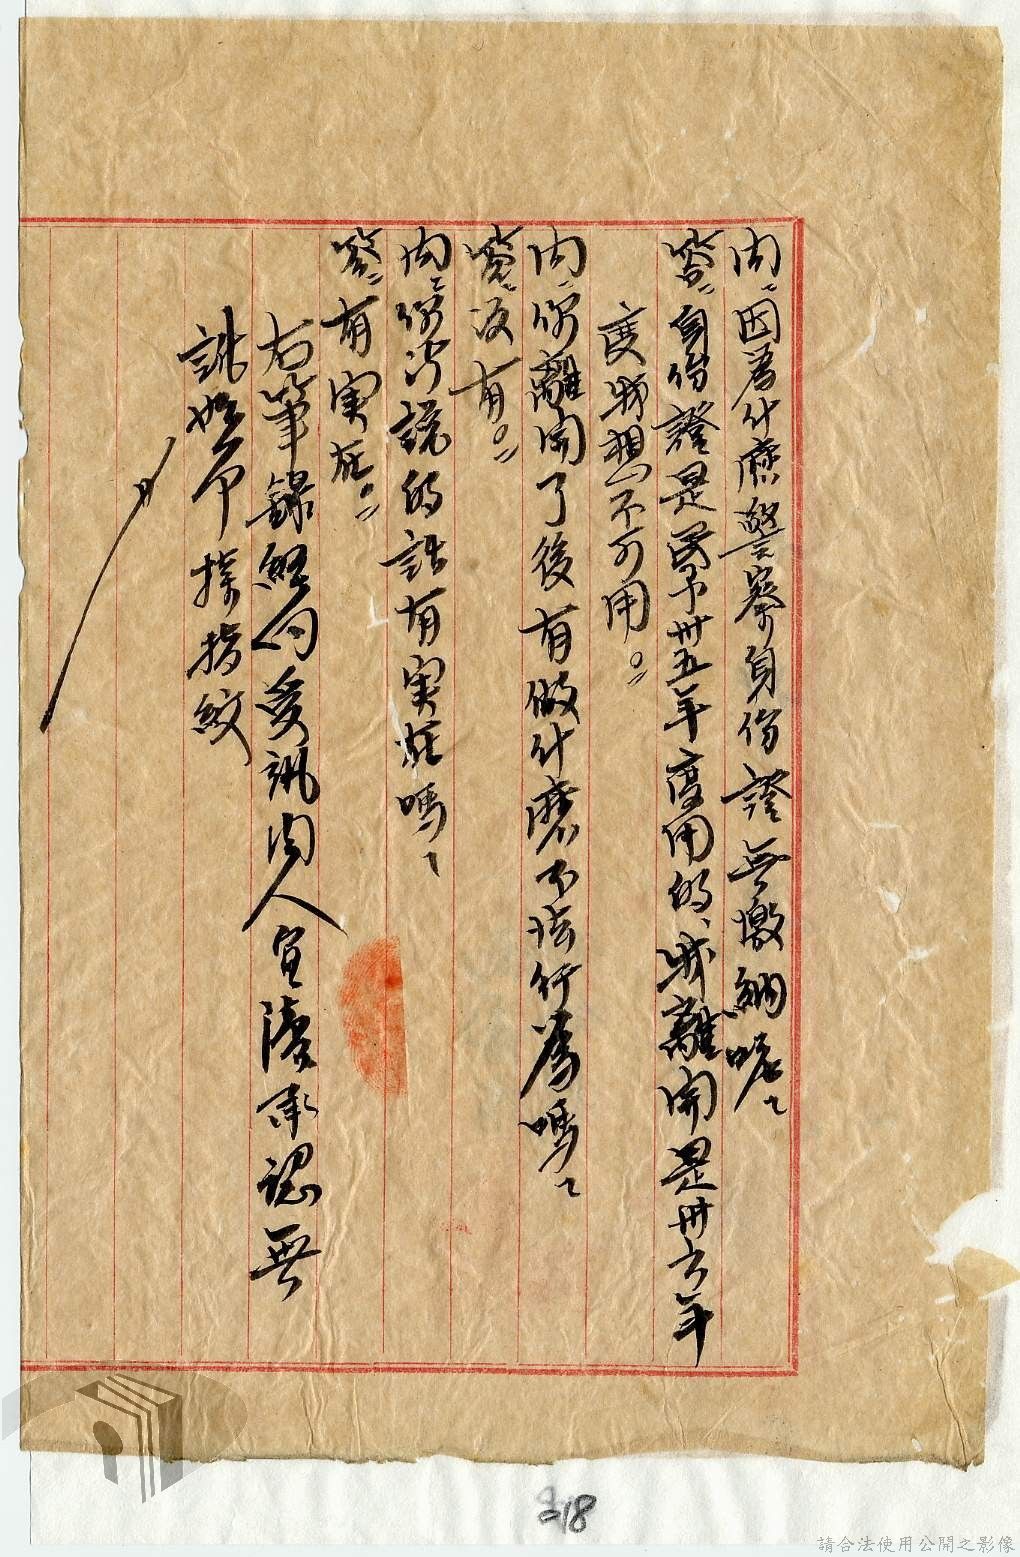 問:因為什麼警察身份證無繳納呢?
答:自份證是民國卅五年度用的、我離開是卅六年
度我想不可用。
問:你離開了後有做什麼不法行為嗎?
答:没有。
問:你所說的話有実在嗎?
答:有実在。
右筆錄經向受訊問人宣讀承認無
訛始命捺指紋
218
請合法使用公開之影像